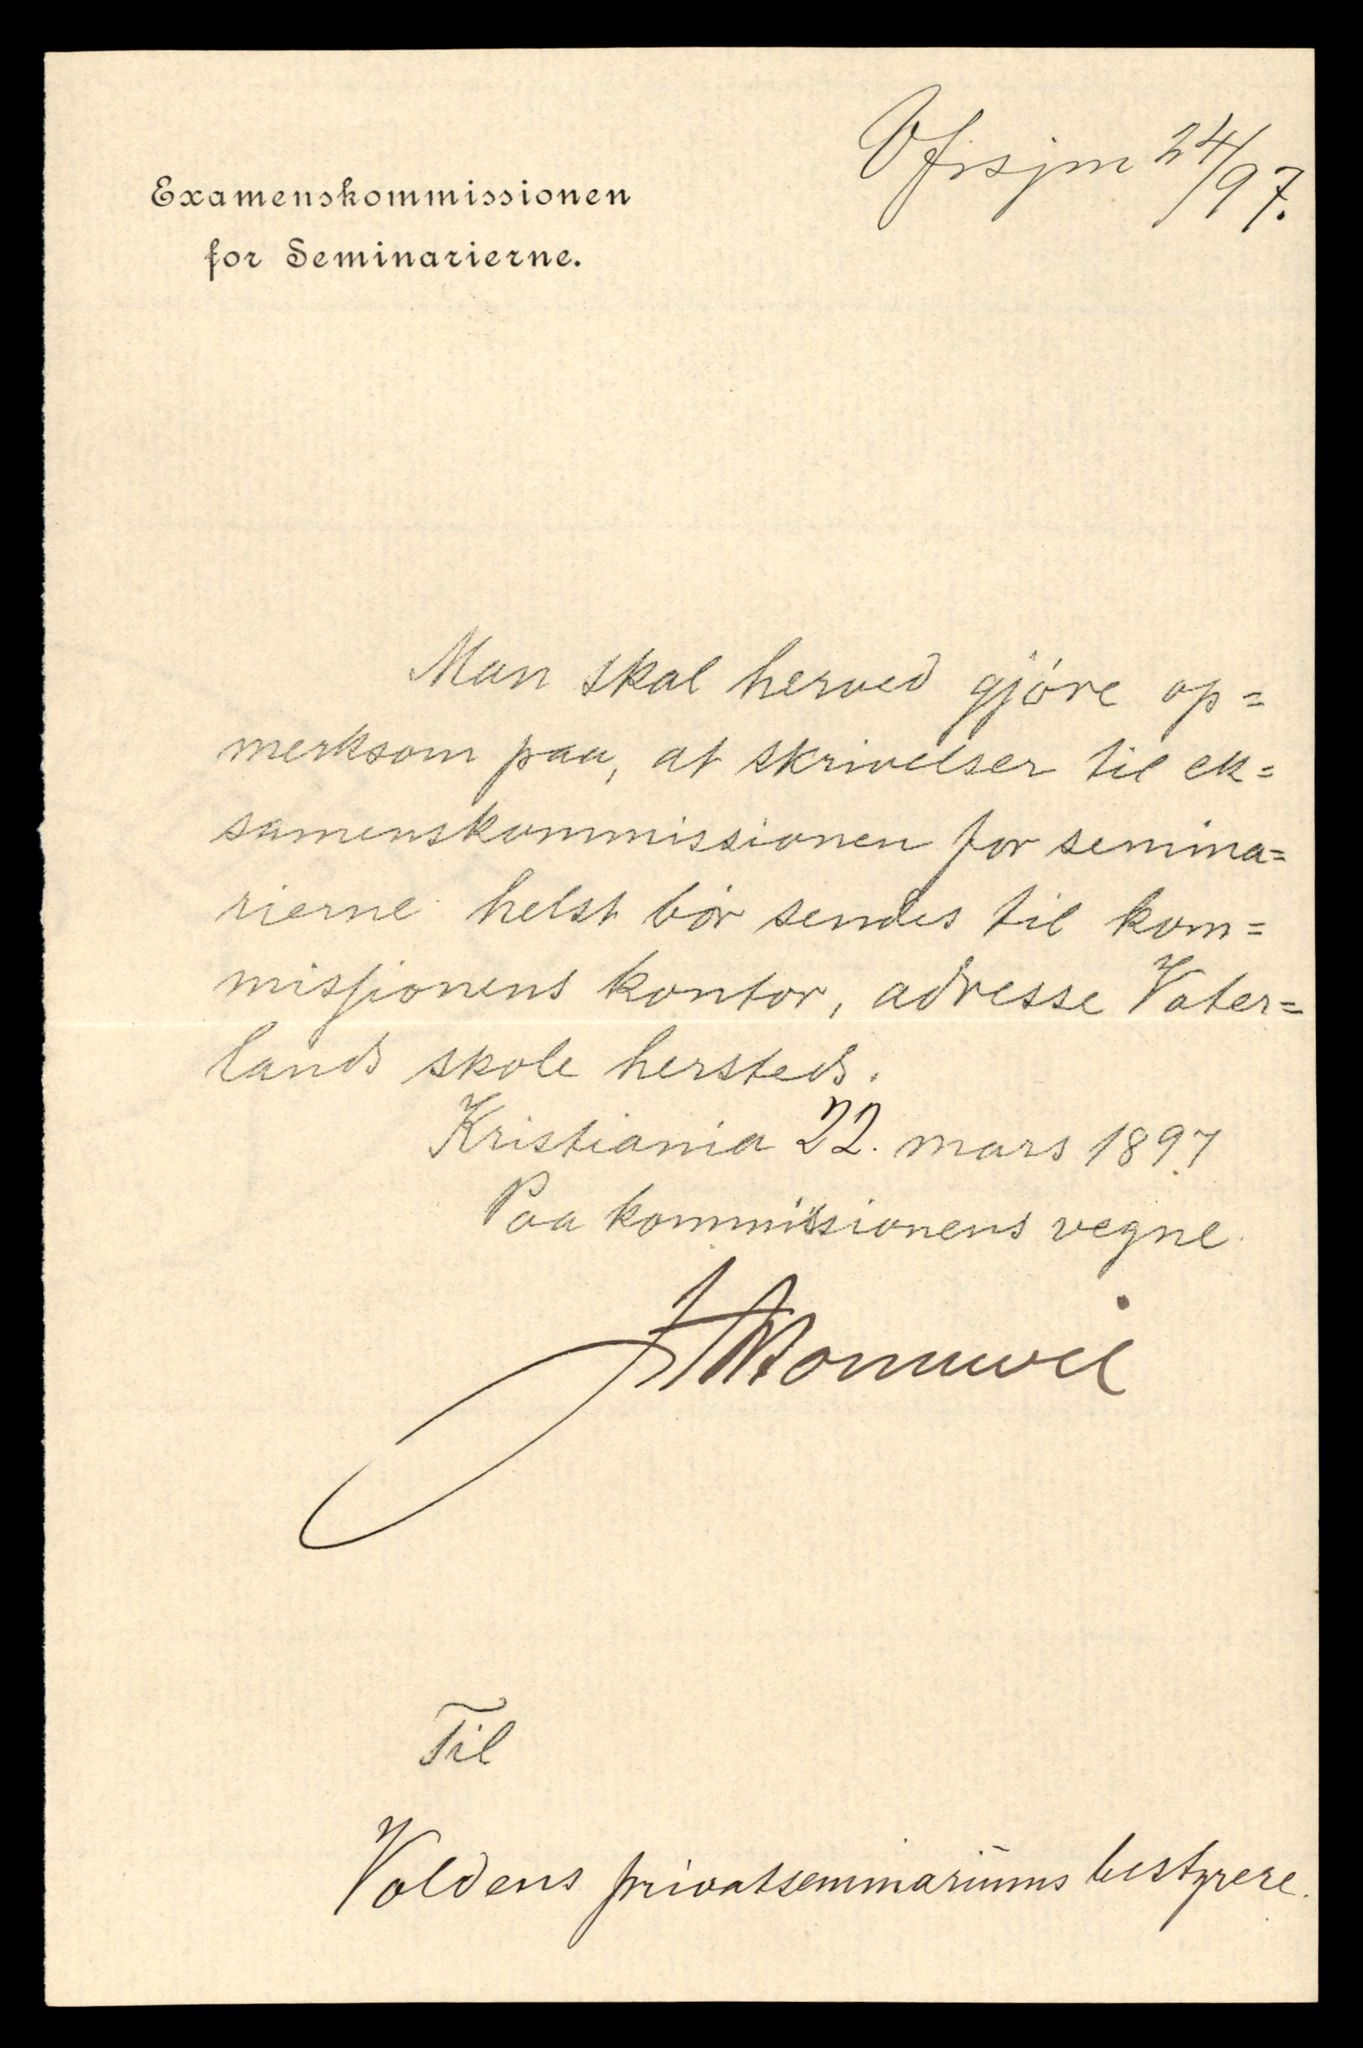 24/97.
Examenskommissionen
for Seminarierne.
Man skal herved gjöre op=
merksom paa, at skrivelser til ek=
samenskommissionen for semina=
rierne helst bör sendes til kom=
missionens kontor, adresse Vater=
lands skole hersteds.
Kristiania 22. mars 1897
Paa kommissionens vegne.
Til
Voldens privatseminariums bestyrere.